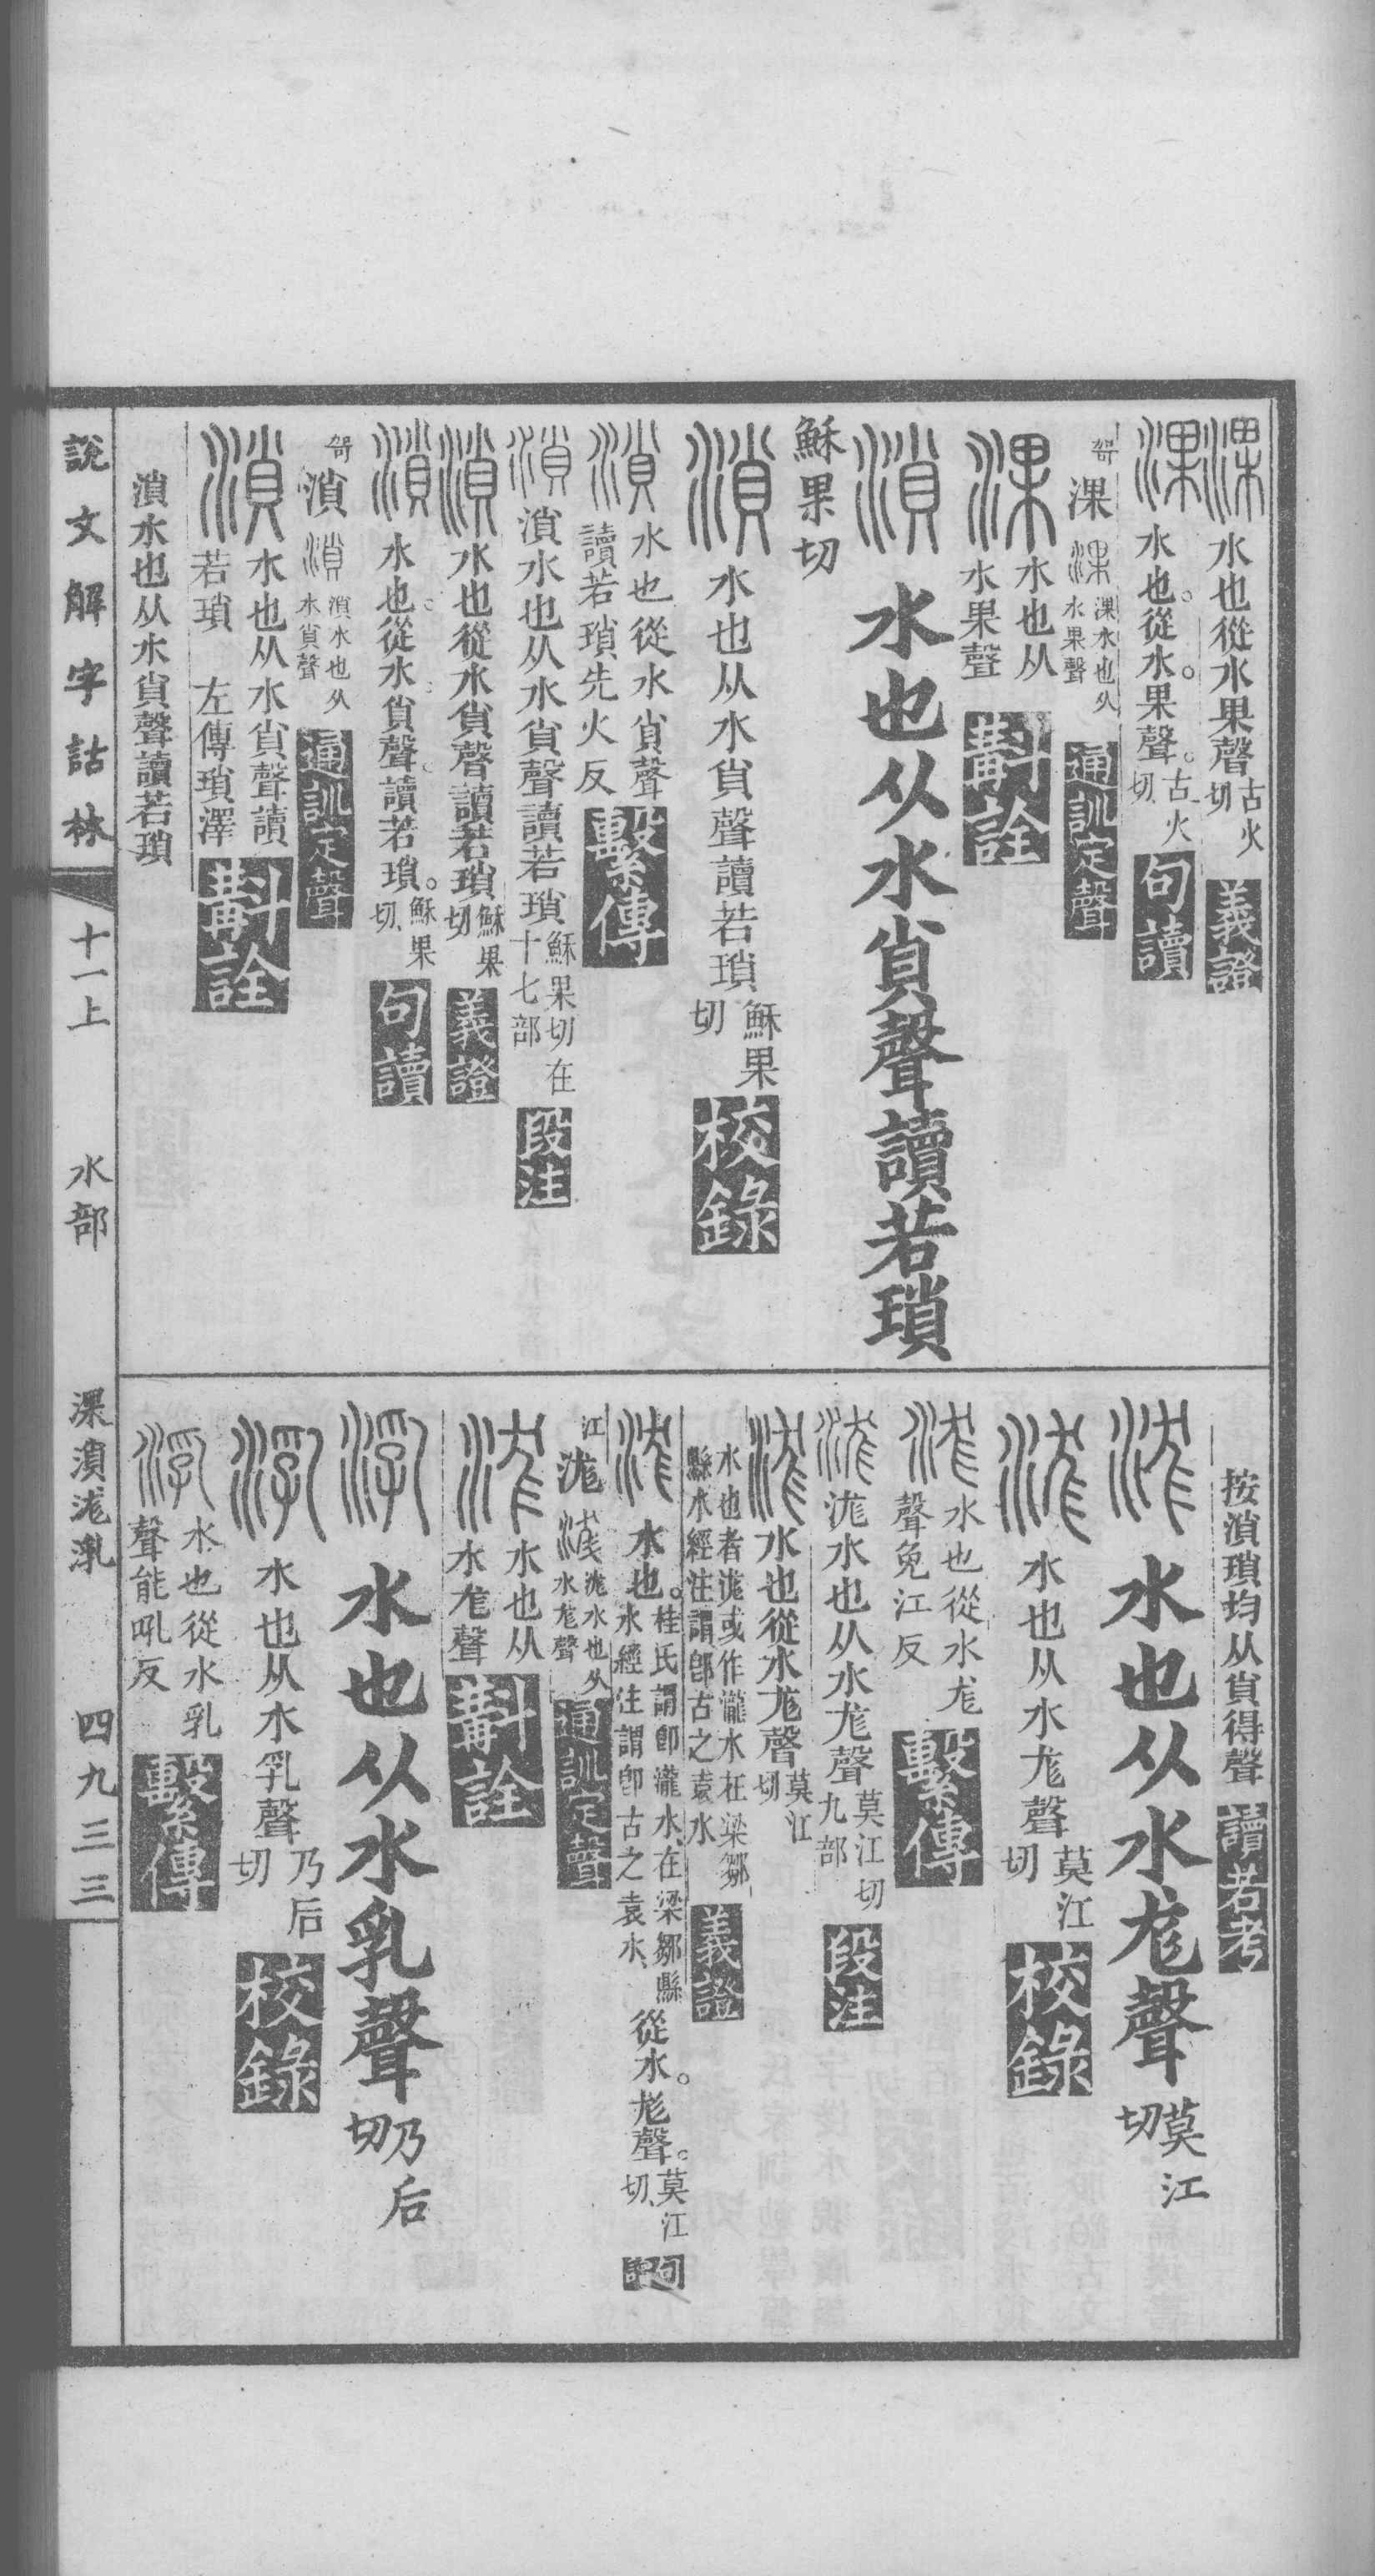 淉水也從水果聲古火切義證
淉水也。從水。果聲。古火切句讀
哿淉淉淉水也从水果聲通訓定聲
淉水也从水果聲斠詮
溑水也从水𧴪聲讀若瑣
穌果切
溑水也从水𧴪聲讀若瑣穌果切校錄
溑水也從水𧴪聲讀若瑣先火反繫傳
溑溑水也从水𧴪聲讀若瑣穌果切在十七部段注
溑水也從水𧴪聲讀若瑣穌果切義證
溑水也。從水。𧴪聲。讀若瑣。穌果切句讀
哿溑溑溑水也从水𧴪聲通訓定聲
溑水也从水𧴪聲讀若瑣 左傳瑣澤斠詮
溑水也从水𧴪聲讀若瑣
按溑瑣均从𧴪得聲讀若考
浝水也从水尨聲莫江切
浝水也从水尨聲莫江切校錄
浝水也從水尨聲免江反繫傳
浝浝水也从水尨聲莫江切九部段注
浝水也從水尨聲莫江切
水也者浝或作瀧水在梁鄒縣水經注謂卽古之袁水義證
浝水也。桂氏謂卽瀧水、在梁鄒縣水經注謂卽古之袁水、從水。尨聲。莫江切、句讀
江浝浝浝水也从水尨聲通訓定聲
浝水也从水尨聲斠詮
㳶水也从水乳聲乃后切
㳶水也从水乳聲乃后切校錄
㳶水也從水乳聲能吼反繫傳
說文解字詁林 十一上 水部 淉溑浝㳶 四九三三